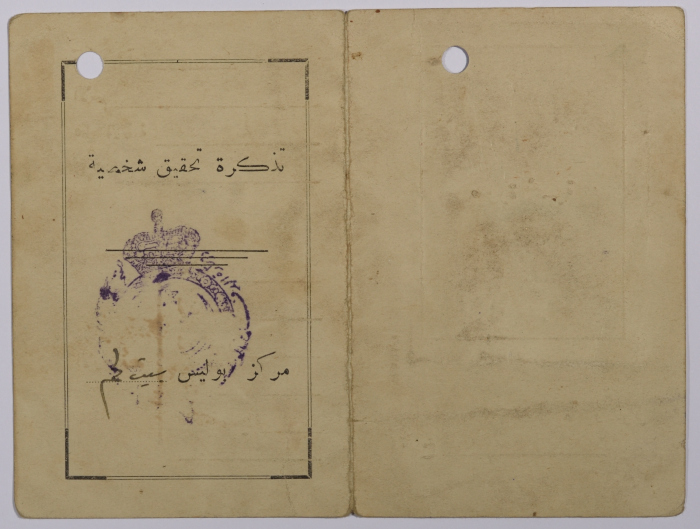 تذكرة تحقيق شخصية
مركز بوليس بيت لحم